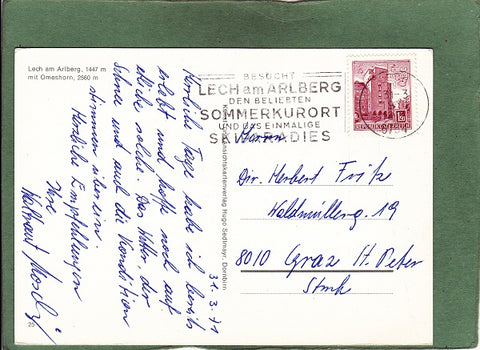 Lech am Arlberg, 1447 m
mit Omeshorn, 2560 m
31.3.71
Herrliche Tage habe ich bereits
erlebt und hoffe noch auf
etliche solche. Das Wetter, der
Schnee und auch die Kondition
stimmen überein.
Herzliche Empfehlungen
Ihre
Waltraut
25
BESUCHT
LECH am ARLBERG
DEN BELIEBTEN
SOMMERKURORT
UND DAS EINMALIGE
SKIPARADIES
REPUBLIK ÖSTERREICH
Herrn
Dir. Herbert Fritz
Waldmüllerg. 19
8010 Graz St. Peter
Stmk